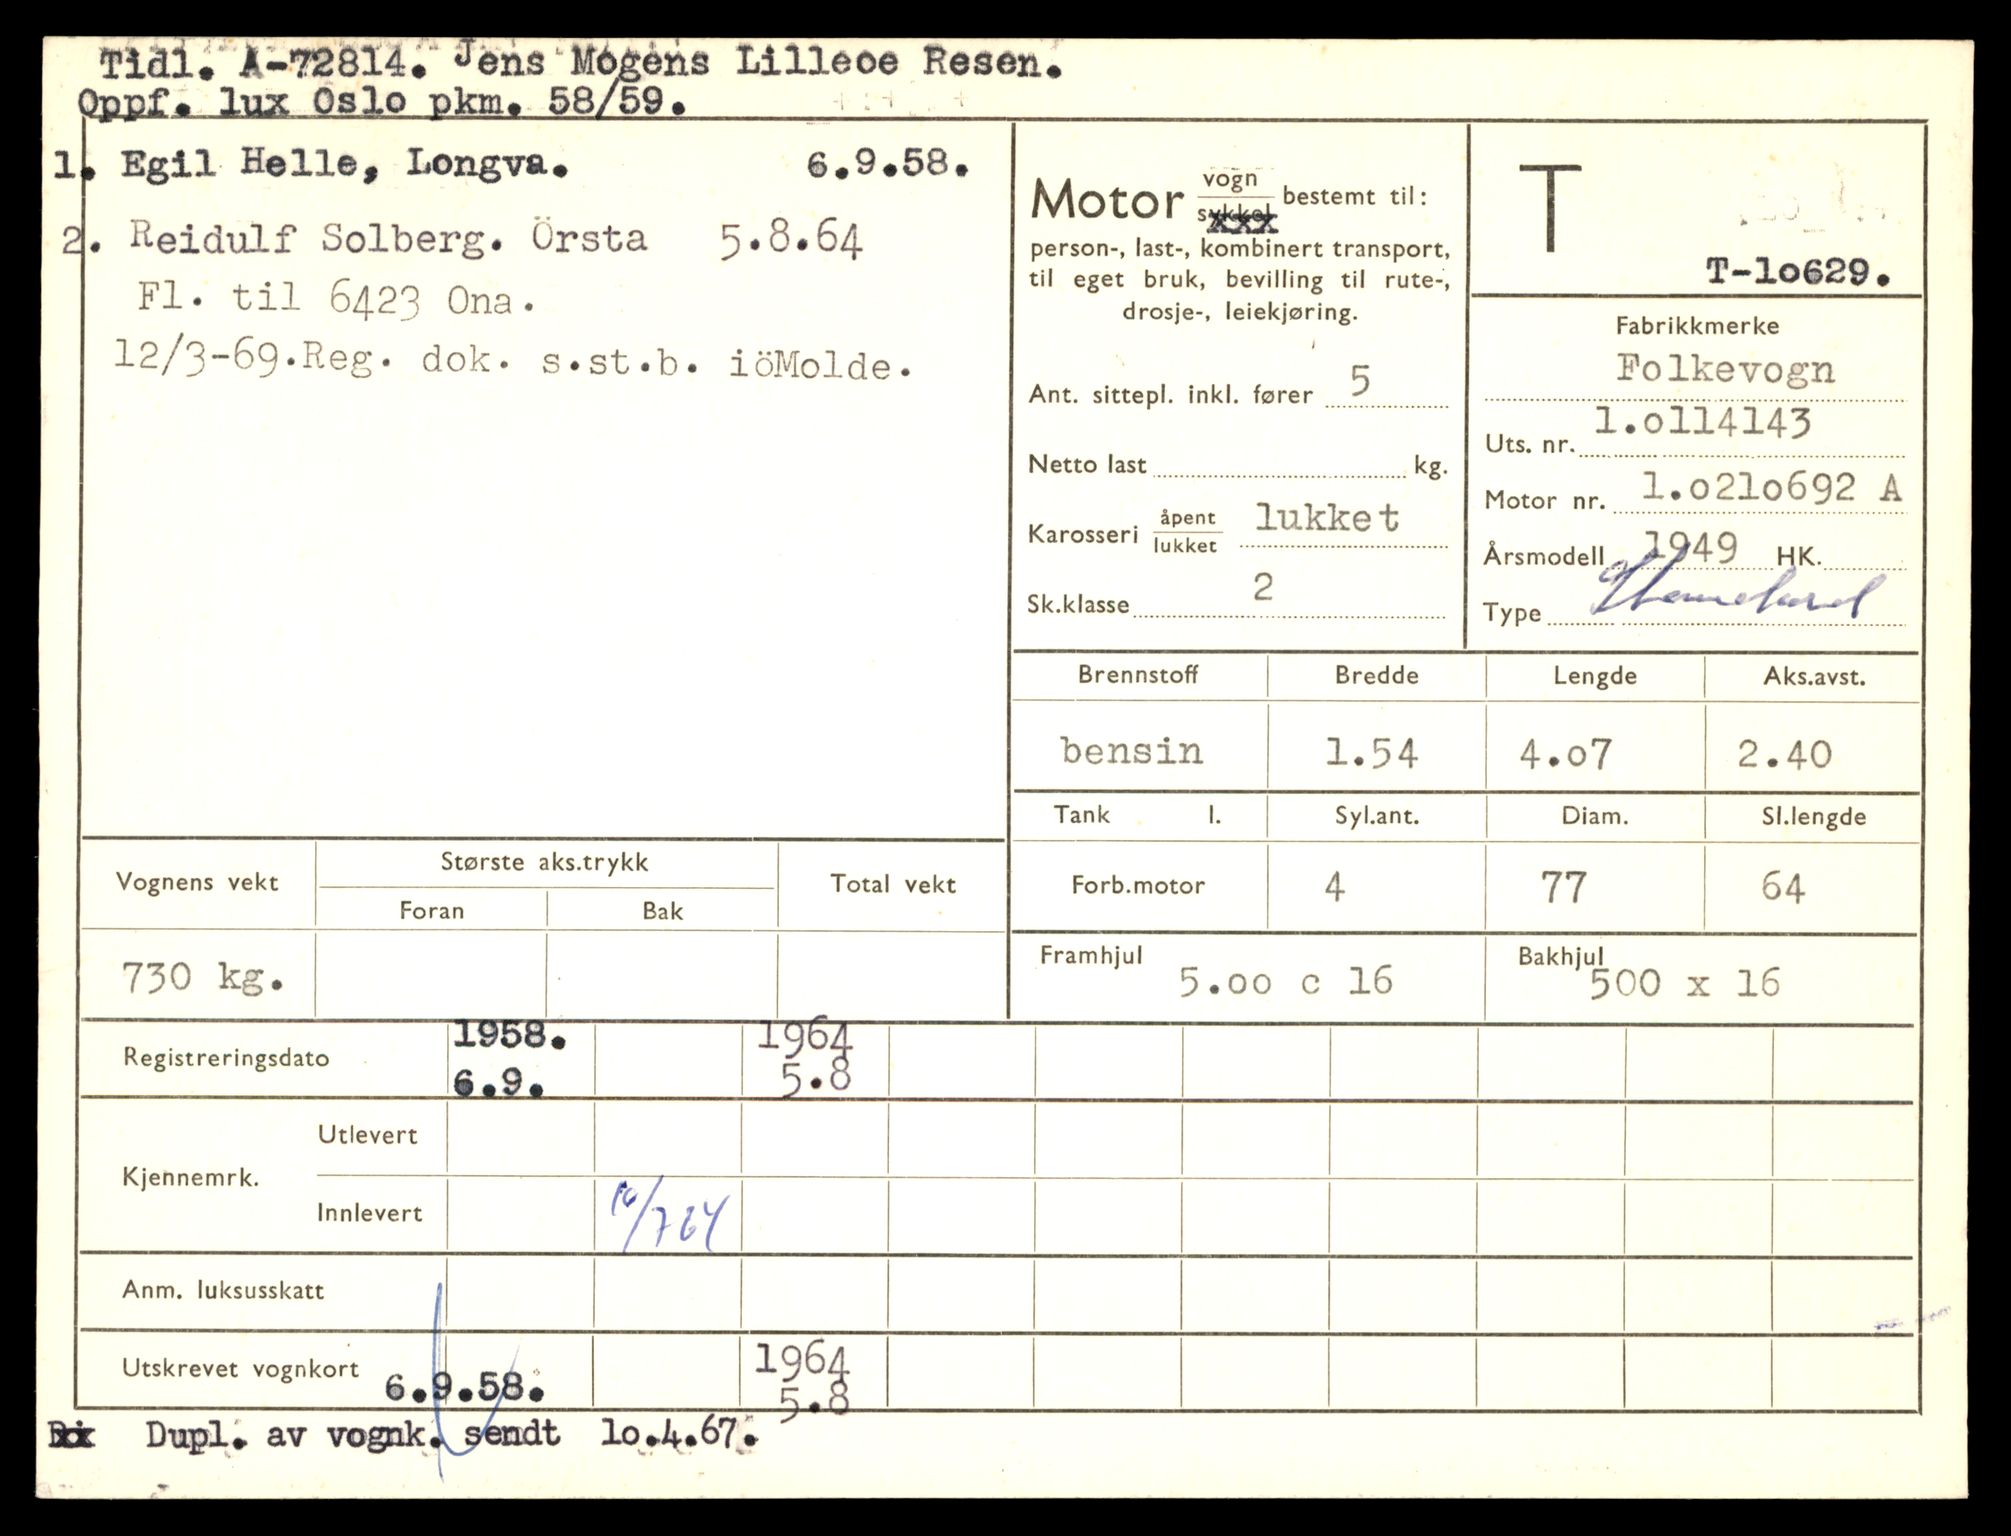 Tidl. A-72814. Jens Mogens Lilleoe Resen.
Oppf. lux Oslo pkm. 58/59.
1. Egil Helle, Longva. 6.9.58.
2. Reidulf Solberg. Örsta 5.8.64
Fl. til 6423 Ona.
12/3-69.Reg. dok. s.st.b. iöMolde.
Motor vogn/sykkel bestemt til:
person-, last-, kombinert transport,
til eget bruk, bevilling til rute-,
drosje-, leiekjøring.
Ant. sittepl. inkl. fører 5
Netto last kg.
Karosseri åpent/lukket lukket
Sk.klasse 2
T
T-1o629.
Fabrikkmerke
Folkevogn
Uts. nr. 1.o114143
Motor nr. 1.o21o692 A
Årsmodell 1949 HK.
Type
Brennstoff Bredde Lengde Aks.avst.
bensin 1.54 4.o7 2.40
Tank l. Syl.ant. Diam. Sl.lengde
Forb.motor 4 77 64
Framhjul 5.oo c 16 Bakhjul 500 x 16
Vognens vekt Største aks.trykk Total vekt
Foran Bak
730 kg.
Registreringsdato 1958. 1964
6.9. 5.8
Kjennemrk. Utlevert
Innlevert 10/7 64
Anm. luksusskatt
Utskrevet vognkort 6.9.58. 1964
5.8
Dupl. av vognk. sendt 1o.4.67.